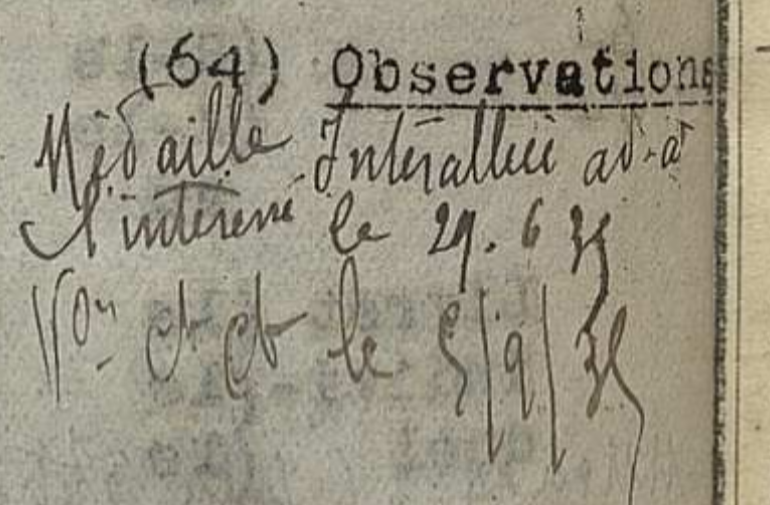 (64) Observations
Médaille Interalliée ad. à
l'intéressé le 29. 6 35
Von et le 5/9/35